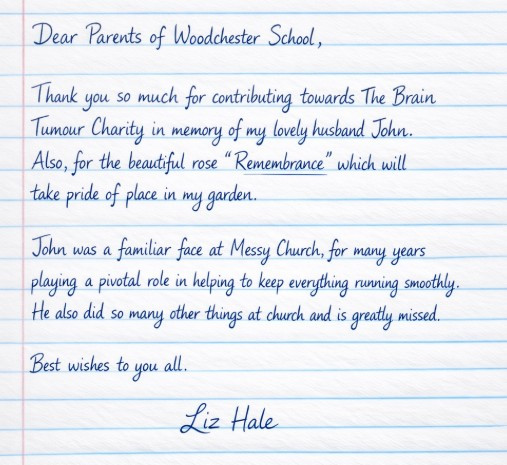 Dear Parents of Woodchester School,
Thank you so much for contributing towards The Brain
Tumour Charity in memory of my lovely husband John.
Also, for the beautiful rose “Remembrance” which will
take pride of place in my garden.
John was a familiar face at Messy Church, for many years
playing a pivotal role in helping to keep everything running smoothly.
He also did so many other things at church and is greatly missed.
Best wishes to you all.
Liz Hale